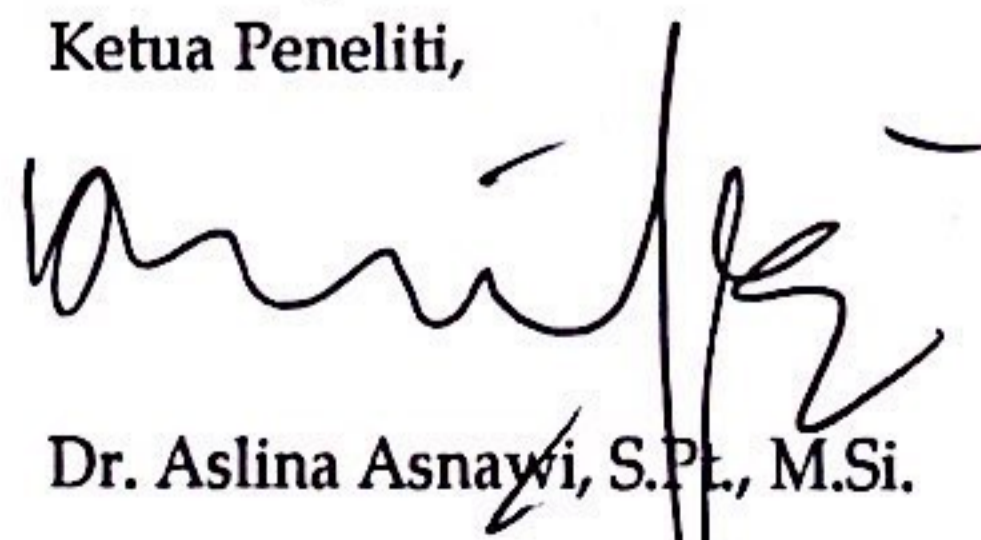 Ketua Peneliti,
Dr. Aslina Asnawi, S.Pt., M.Si.